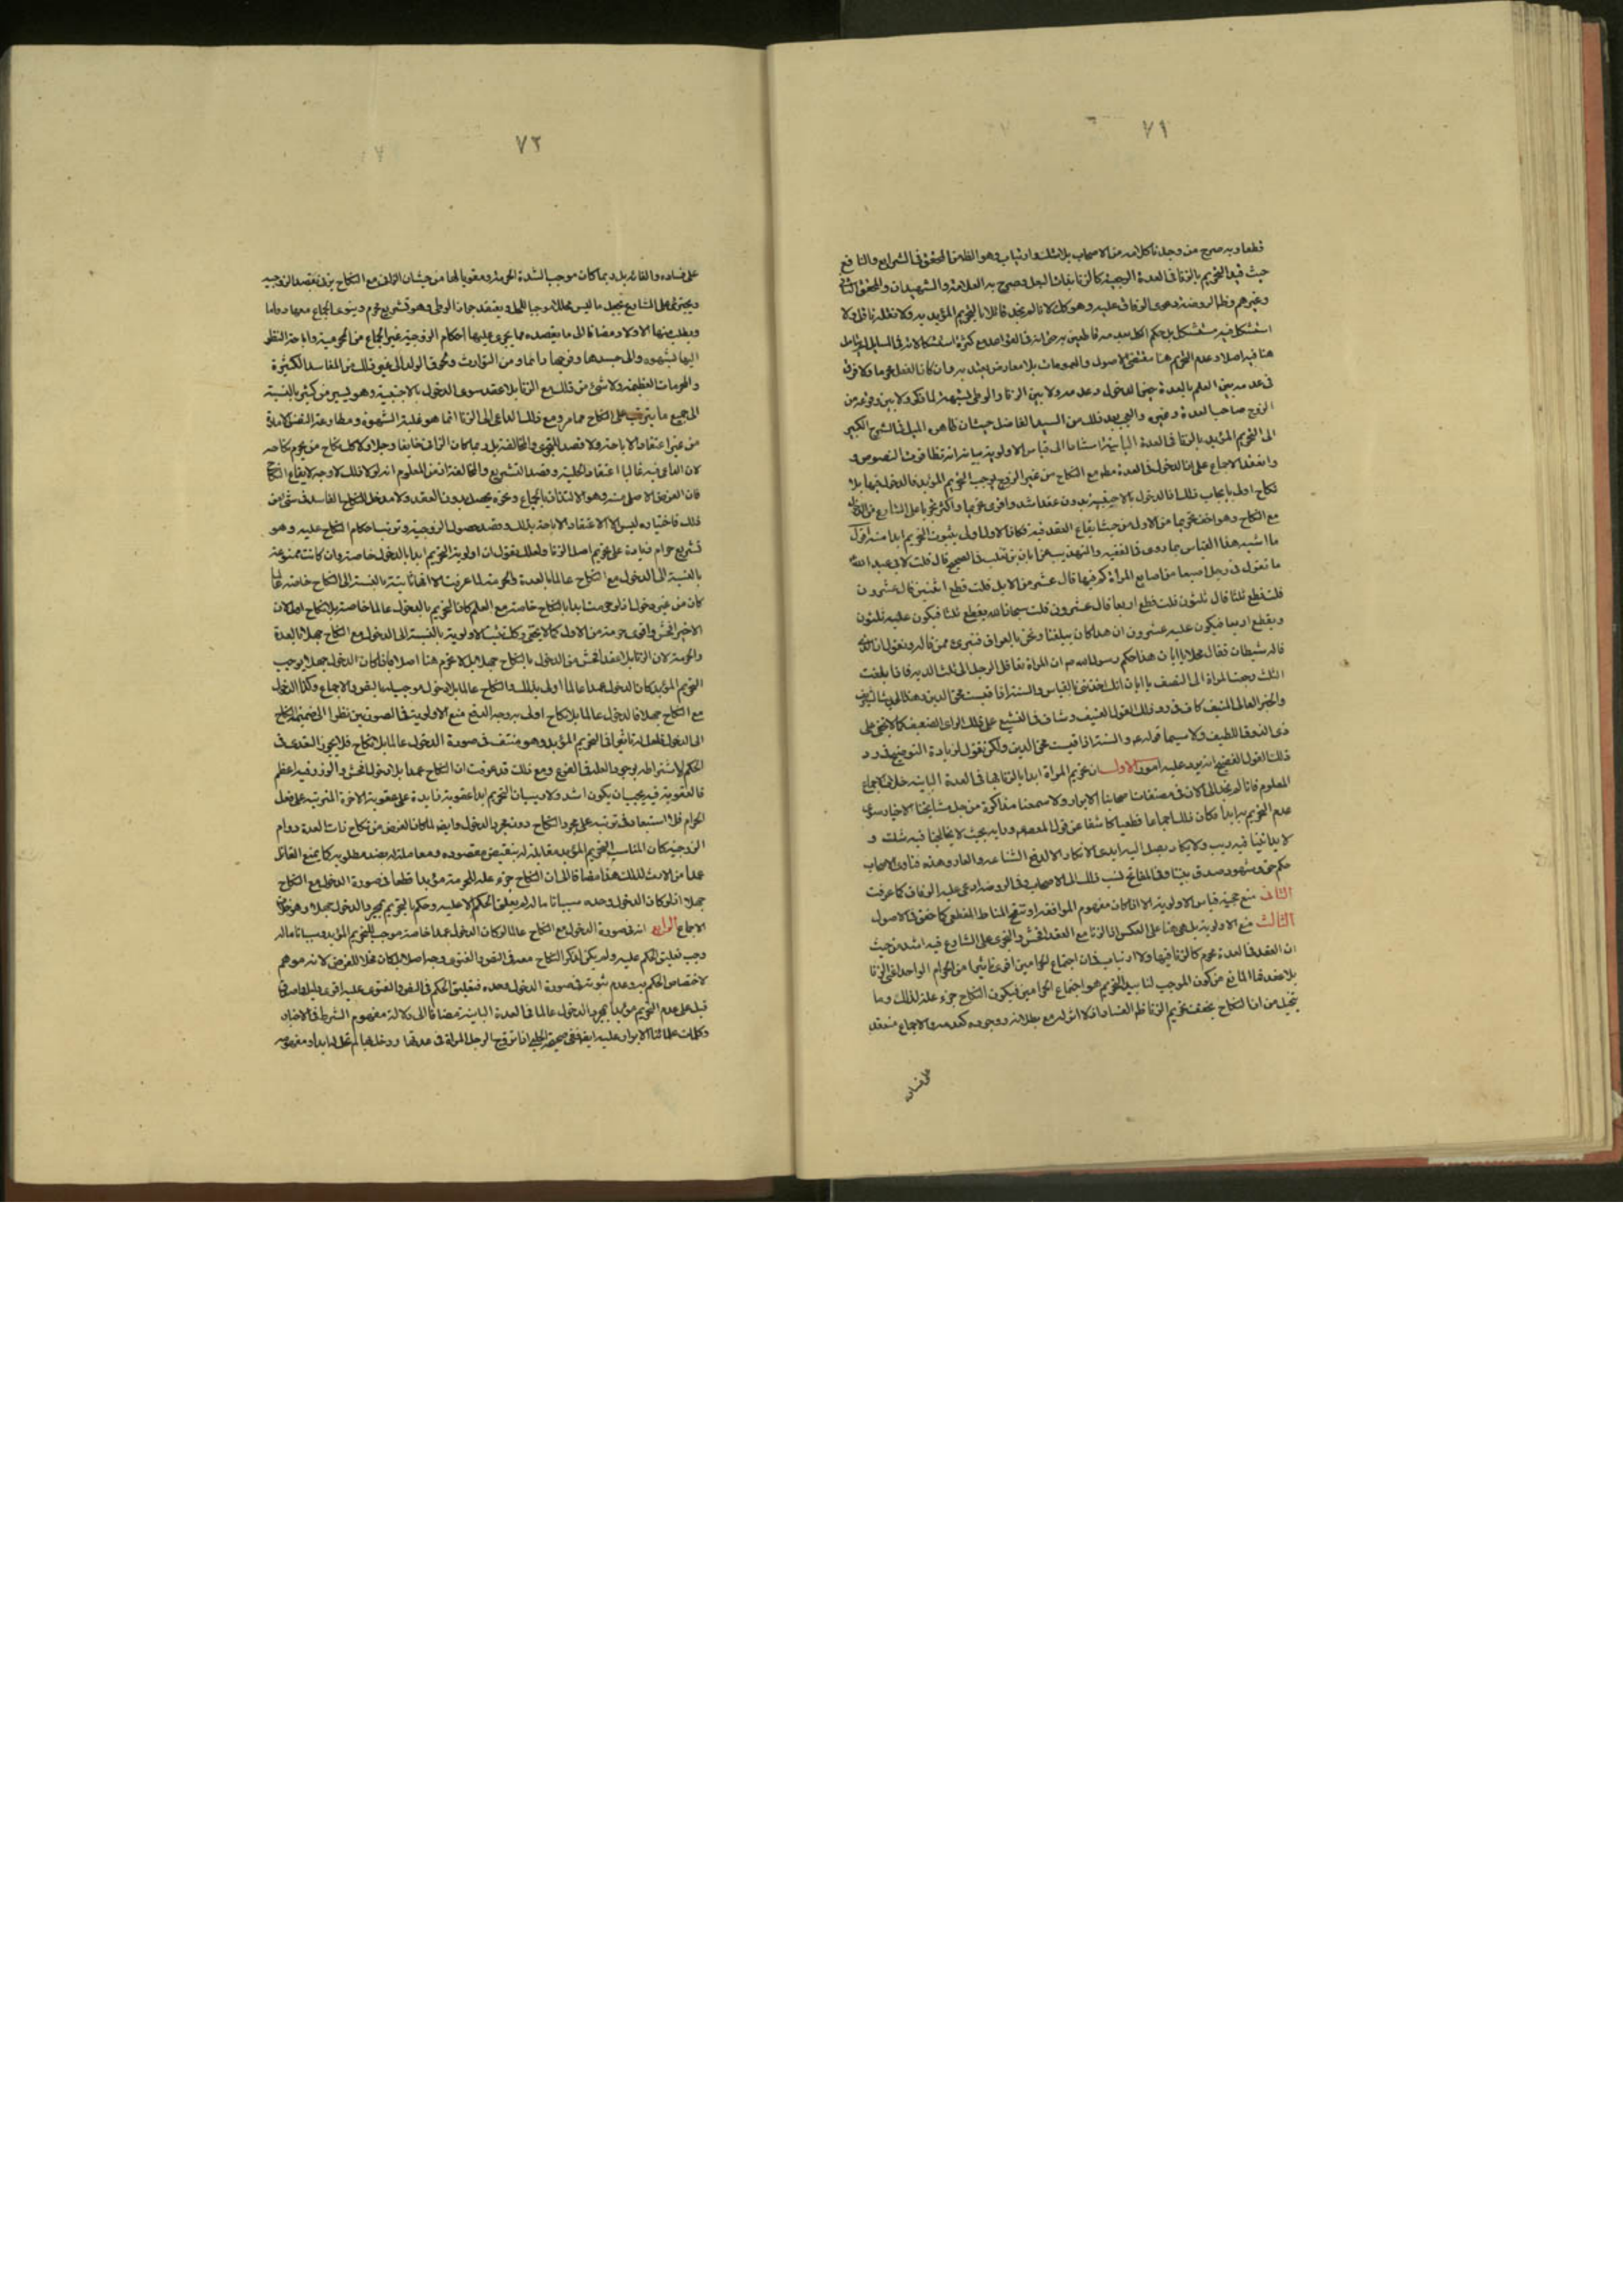 ٧١
قطعا وبه صرح من وجدنا كلامه من الاصحاب بلا شك وارتياب وهو الظاهر من المحقق فى الشرايع والنافع
حيث قيد التحريم بالزنا فى العدة الرجعية كالزنا بذات البعل وصرح به العلامة والشهيدان والمحقق الثانى
وغيرهم وظاهر الروضة دعوى الوفاق عليه وهو كك لانا لم نجد قائلا بالتحريم المؤبد به ولا نقله ناقل ولا
استشكل فيه مستشكل بل حكم الكل بعدمه قاطعين به حتى انه فى القواعد مع كثرة استشكالاته فى المسايل لم يتامل
هنا فيه اصلا وعدم التحريم هنا مقتضى الاصول والعمومات بلا معارض يعتد به وان كان الفعل محرما ولا فرق
فى عدمه بين العلم بالعدة حين الدخول وعدمه ولا بين الزنا والوطى بشبهة لما ذكر ولا بين وقوعه من
الزوج صاحب العدة وغيره والعجب بعد ذلك من السيد الفاضل حيث ان ظاهره الميل فى الشرح الكبير
الى التحريم المؤبد بالزنا فى العدة الباينة استنادا الى قياس الاولوية بيانه انه تظافرت النصوص و
وانعقد الاجماع على ان الدخول فى العدة مطلقا مع النكاح من غير الزوج يوجب التحريم المؤبد فالدخول فيها بلا
نكاح اولى بايجاب ذلك اذ الدخول بالاجنبية بدون عقد اشد واقوى تحريما واكثر تجريا على الشارع من الدخول
مع النكاح وهو اخف تحريما من الاول من حيث ايقاع العقد فيه فكان الاول اولى بثبوت التحريم ابدا منه اقول
ما اشبه هذا القياس بما روى فى الفقيه والتهذيب عن ابان بن تغلب فى الصحيح قال قلت لابى عبد الله
ما تقول فى رجل قطع اصبعا من اصابع المراة كم فيها قال عشر من الابل قلت قطع اثنتين قال عشرون
قلت قطع ثلثا قال ثلثون قلت قطع اربعا قال عشرون قلت سبحان الله يقطع ثلثا فيكون عليه ثلثون
ويقطع اربعا فيكون عليه عشرون ان هذا كان يبلغنا ونحن بالعراق فنبرئ ممن قاله ونقول ان الذى
قاله شيطان فقال مهلا يا ابان هذا حكم رسول الله ص ان المراة تعاقل الرجل الى ثلث الدية فاذا بلغت
الثلث رجعت المراة الى النصف يا ابان انك اخذتنى بالقياس والسنة اذا قيست محق الدين وهذا الحديث الشريف
والخبر العالى المنيف كاف فى رد ذلك القول العنيف وشاف فى التشنيع على ذلك الراى الضعيف كما لا يخفى على
ذى الذوق اللطيف ولا سيما قوله ع والسنة اذا قيست محق الدين ولكن نقول لزيادة التوضيح فى رد
ذلك القول الفضيح انه يرد عليه امور الاول ان تحريم المراة ابدا بالزنا بها فى العدة الباينة خلاف الاجماع
المعلوم فانا لم نجد الى الآن فى مصنفات اصحابنا الابرار ولا سمعنا مذاكرة من جل مشايخنا الاخيار سوى
عدم التحريم به ابدا فكان ذلك اجماعا قطعيا كاشفا عن قول المعصوم ورايه بحيث لا يخالجنا فيه شك و
لا يداخلنا فيه ريب ولا يكاد يصل اليه ايدى الانكار الا الدفع الشناعه والعار وهذه فتاوى الاصحاب
حكم حق وشهود صدق بيننا وفى المفاتيح نسب ذلك الى الاصحاب وفى الروضة ادعى عليه الوفاق كما عرفت
الثانى منع حجية قياس الاولوية الا اذا كان مفهوم الموافقة او تنقيح المناط القطعى كما حقق فى الاصول
الثالث منع الاولوية بل هى هنا على العكس اذ الزنا مع العقد افحش والتجرى على الشارع فيه اشد من حيث
ان العقد فى العدة محرم كالزنا فيها ولا ارتياب فى ان اجتماع الحرامين اقوى تاثيرا من الحرام الواحد اعنى الزنا
بلا عقد فما المانع من كون الموجب لتابيد التحريم هو اجتماع الحرامين فيكون النكاح جزء علة لذلك وما
يتخيل من ان النكاح يخفف تحريم الزنا ظاهر الفساد اذ لا اثر له مع بطلانه ووجوده كعدمه والاجماع منعقد
على فساده
٧٢
على فساده والغائه بل ربما كان موجبا لشدة الحرمة ومقويا لها من حيث ان الزانى مع النكاح يزنى بقصد الزوجية
ويجترئ على الشارع بجعل ما ليس محللا موجبا للحل ويعتقد جواز الوطى وهو تشريع محرم وينوى الجماع معها دواما
ويطلب منها الاولاد مضافا الى ما يقصده مما يجرى عليها احكام الزوجية غير الجماع من المحرمية واباحة النظر
اليها بشهوة والى جسدها وفرجها دائما ومن التوارث ولحوق الولد الى غير ذلك من المفاسد الكثيرة
والحرمات العظيمة ولا شئ من ذلك مع الزنا بلا عقد سوى الدخول بالاجنبية وهو يسير من كثير بالنسبة
الى جميع ما يترتب على النكاح مما مر ومع ذلك الداعى الى الزنا انما هو غلبة الشهوة ومطاوعة النفس الامارة
من غير اعتقاد الاباحة ولا قصد التجرى والمخالفة بل ربما كان الزانى خايفا وجلا ولا كك نكاح من يحرم نكاحه
لان الداعى فيه غالبا اعتقاد الحلية وقصد التشريع والمخالفة اذ من المعلوم انه لولا ذلك لا وجه لايقاع النكاح
فان الغرض الاصلى منه وهو الالتذاذ بالجماع ونحوه يحصل بدون العقد ولا مدخل للنكاح الفاسد فى شئ من
ذلك فاختياره ليس الا لاعتقاد الاباحة بذلك وقصد حصول الزوجية وترتب احكام النكاح عليه وهو
تشريع حرام زيادة على تحريم اصل الزنا ولعلك تقول ان اولوية التحريم ابدا بالدخول خاصة وان كانت ممنوعة
بالنسبة الى الدخول مع النكاح عالما بالعدة والحرمة لما عرفت الا انها ثابتة بالنسبة الى النكاح خاصة لما
كان من غير دخول اذ لو حرمت ابدا بالنكاح خاصة مع العلم كان التحريم بالدخول عالما خاصة بلا نكاح اولى لان
الاخير افحش واقوى حرمة من الاول كما لا يخفى وكك ثبتت الاولوية بالنسبة الى الدخول مع النكاح جهلا بالعدة
والحرمة لان الزنا بلا عقد افحش من الدخول بالنكاح جهلا بل لا تحريم هنا اصلا فاذا كان الدخول جهلا يوجب
التحريم المؤبد كان الدخول عمدا عالما اولى بذلك والنكاح عالما بلا دخول موجب له بالنص والاجماع وكذا الدخول
مع النكاح جهلا فالدخول عالما بلا نكاح اولى به وجه الدفع منع الاولوية فى الصورتين نظرا الى ضميمة النكاح
الى الدخول فلعل له تاثيرا فى التحريم المؤبد وهو منتف فى صورة الدخول عالما بلا نكاح فلا يجوز التعدى فى
الحكم لاشتراطه بوجود العلة فى الفرع ومع ذلك قد عرفت ان النكاح عمدا بلا دخول افحش والوزر فيه اعظم
فالعقوبة فيه يجب ان يكون اشد ولا ريب ان التحريم ابدا عقوبة زايدة على عقوبة الآخرة المترتبة على فعل
الحرام فلا استبعاد فى ترتبه على مجرد النكاح دون مجرد الدخول وايضا لما كان الغرض من نكاح ذات العدة دوام
الزوجية كان المناسب التحريم المؤبد مقابلة له بنقيض مقصوده ومعاملة له بضد مطلوبه كما يمنع القاتل
عمدا من الارث لذلك هذا مضافا الى ان النكاح جزء علة للحرمة مؤبدا قطعا فى صورة الدخول مع النكاح
جهلا اذ لو كان الدخول وحده سببا تاما له لم يعلق الحكم الا عليه وحكم بالتحريم بمجرد الدخول جهلا وهو خلاف
الاجماع الرابع انه فى صورة الدخول مع النكاح عالما لو كان الدخول عمدا خاصة موجبا للتحريم المؤبد وسببا تاما له
وجب تعليق الحكم عليه ولم يكن لذكر النكاح معه فى النص والفتوى وجه اصلا بل كان مخلا للغرض لانه موهم
لاختصاص الحكم به وعدم ثبوته فى صورة الدخول وحده فتعليق الحكم فى النص والفتوى عليه اقوى دليل واصدق
قيل على عدم التحريم مؤبدا بمجرد الدخول عالما فى العدة الباينة مضافا الى دلالة مفهوم الشرط فى الاخبار
وكلمات علمائنا الابرار عليه ايضا ففى صحيحة الحلبى اذا تزوج الرجل المراة فى عدتها ودخل بها لم تحل له ابدا ومفهومه